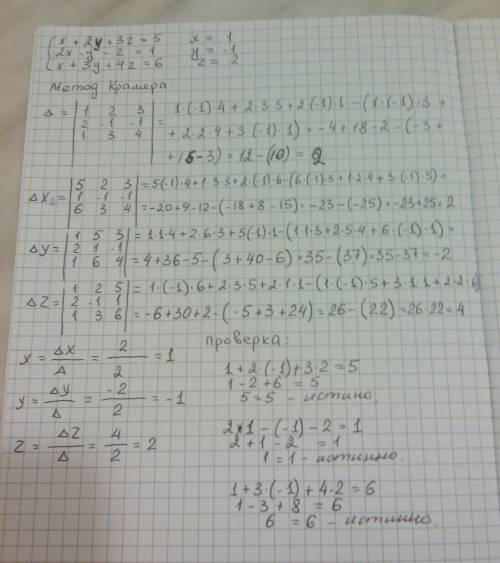 x + 2y + 3z = 5 x = 1
2x - y - z = 1 y = -1
x + 3y + 4z = 6 z = 2
Метод Крамера:
Δ = | 1 2 3 | 1·(-1)·4 + 2·3·3 + 2(-1)·1 - (1·(-1)·3 +
| 2 -1 -1 | = + 2·2·4 + 3·(-1)·1) = -4 + 18 - 2 - (-3 +
| 1 3 4 | + 16 - 3) = 12 - (10) = 2
ΔX = | 5 2 3 | = 5(-1)·4 + 1·3·3 + 2(-1)·6 - (6(-1)·3 + 1·2·4 + 3·(-1)·5) =
| 1 -1 -1 |
| 6 3 4 | = -20 + 9 - 12 - (-18 + 8 - 15) = -23 - (-25) = -23 + 25 = 2
ΔY = | 1 5 3 | = 1·1·4 + 2·6·3 + 5(-1)·1 - (1·1·3 + 2·5·4 + 6·(-1)·1) =
| 2 1 -1 |
| 1 6 4 | = 4 + 36 - 5 - (3 + 40 - 6) = 35 - (37) = 35 - 37 = -2
ΔZ = | 1 2 5 | = 1·(-1)·6 + 2·3·5 + 2·1·1 - (1·(-1)·5 + 3·1·1 + 2·2·6)
| 2 -1 1 |
| 1 3 6 | = -6 + 30 + 2 - (-5 + 3 + 24) = 26 - (22) = 26-22 = 4
X = ΔX/Δ = 2/2 = 1
Y = ΔY/Δ = -2/2 = -1
Z = ΔZ/Δ = 4/2 = 2
Проверка:
1 + 2·(-1) + 3·2 = 5
1 - 2 + 6 = 5
5 = 5 - истино.
2·1 - (-1) - 2 = 1
2 + 1 - 2 = 1
1 = 1 - истинно.
1 + 3·(-1) + 4·2 = 6
1 - 3 + 8 = 6
6 = 6 - истинно.